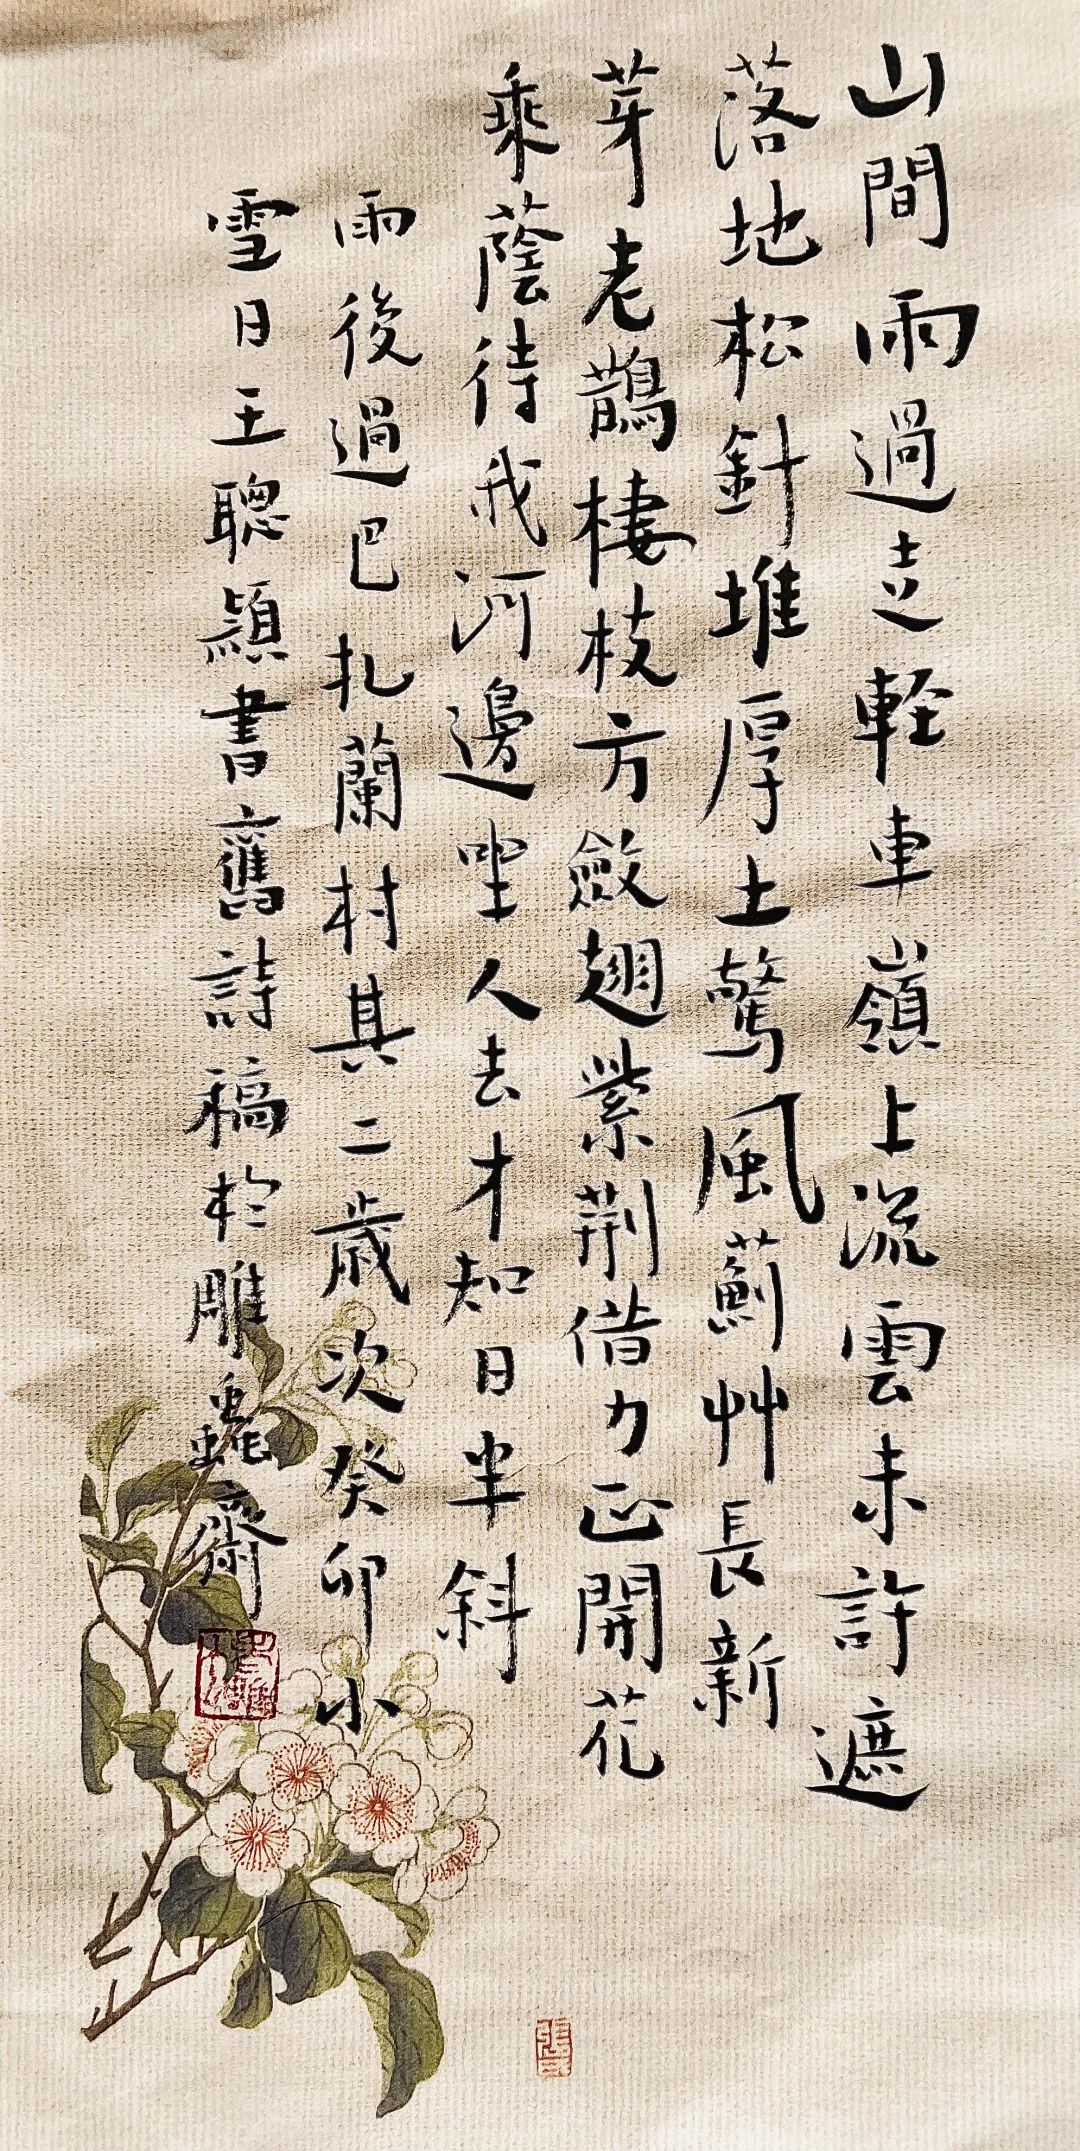 山間雨過走輕車嶺上流雲未許遮
落地松針堆厚土驚風薊艸長新
芽老鵲棲枝方斂翅紫荆借力正開花
乘蔭待我河邊坐人去才知日半斜
雨後過巴扎蘭村其二歲次癸卯小
雪日王聰穎書舊詩稿於雕蟲齋